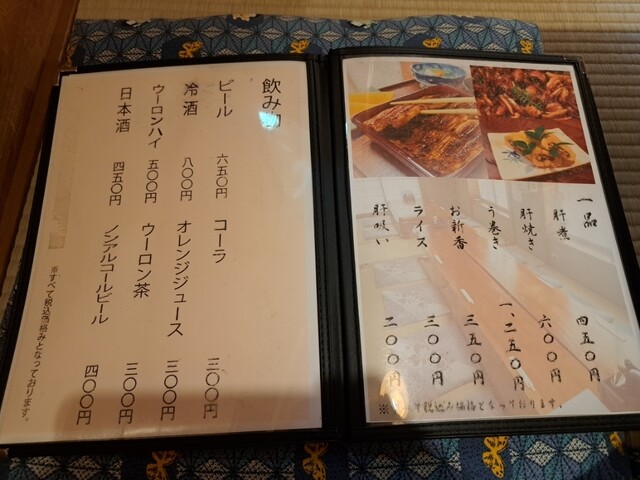 一品
肝煮 四五〇円
肝焼き 六〇〇円
う巻き 一、二五〇円
お新香 三五〇円
ライス 三〇〇円
肝吸い 二〇〇円
※ て税込み価格となっております。
飲み物
ビール 六五〇円 コーラ 三〇〇円
冷酒 八〇〇円 オレンジジュース 三〇〇円
ウーロンハイ 五〇〇円 ウーロン茶 三〇〇円
日本酒 四五〇円 ノンアルコールビール 四〇〇円
※すべて税込価格みとなっております。